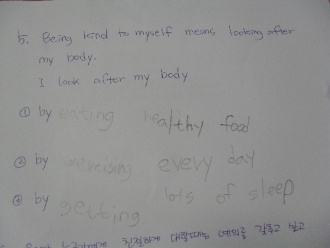 5. Being kind to myself means looking after
my body.
I look after my body
① by eating healthy food
② by exercising every day
③ by getting lots of sleep
친절하게 대할때는 예의를 갖추고